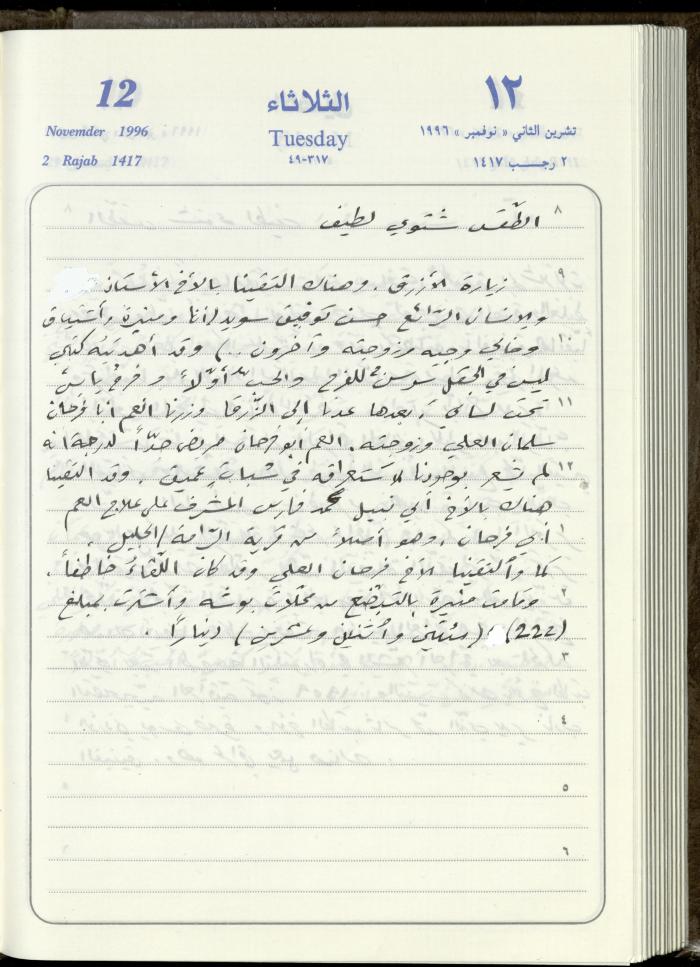 12
الثلاثاء
١٢
Novemder 1996
Tuesday
تشرين الثاني « نوفمبر » ١٩٩٦
2 Rajab 1417
٤٩-٣١٧
٢ رجب ١٤١٧
٨ الطّقس شتوي لطيف
٩ زيارة الأزرق. وهناك التقينا بالأخ الأستاذ
والإنسان الرّائع حسن توفيق سويد (أنا ومنيرة وأشتياق
١٠ وخالي وجيه وزوجته وآخرون..) وقد أهديته كتبي
ليس في الحقل سوسن للفرح والحب أوّلاً و فرح يابس
١١ تحت لساني. بعدها عدنا إلى الزّرقا وزرنا العم أبا فرحان
سلمان العلي وزوجته. العم أبو فرحان مريض جدّاً لدرجة انه
١٢ لم يشعر بوجودنا لاستغراقه في سبات عميق. وقد التقينا
هناك بالأخ أبي نبيل محمد فارس المشرف على علاج العم
١ أبي فرحان. وهو أصلاً من قرية الرّامة / الجليل.
كما وألتقينا الأخ فرحان العلي وقد كان اللّقاء خاطفاً.
٢ وقامت منيرة بالتبضّع من محلّات بوشه وأشترت بمبلغ
(222) (مئتين وأثنين وعشرين) ديناراً.
٣
٤
٥
٦